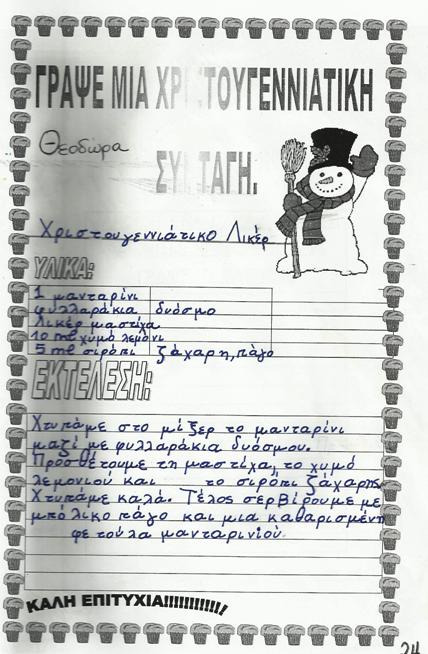 ΓΡΑΨΕ ΜΙΑ ΧΡΙΣΤΟΥΓΕΝΝΙΑΤΙΚΗ
Θεοδώρα
ΣΥΝΤΑΓΗ.
Χριστουγεννιάτικο Λικέρ
ΥΛΙΚΑ:
1 μανταρίνι
φυλλαράκια δυόσμο
Λικέρ μαστίχα
10 ml χυμό λεμόνι
5 ml σιρόπι ζάχαρη, πάγο
ΕΚΤΕΛΕΣΗ:
Χτυπάμε στο μίξερ το μανταρίνι
μαζί με φυλλαράκια δυόσμου.
Προσθέτουμε τη μαστίχα, το χυμό
λεμονιού και το σιρόπι ζάχαρης
Χτυπάμε καλά. Τέλος σερβίρουμε με
μπόλικο πάγο και μια καθαρισμένη
φετούλα μανταρινιού.
ΚΑΛΗ ΕΠΙΤΥΧΙΑ!!!!!!!!!!!!
24